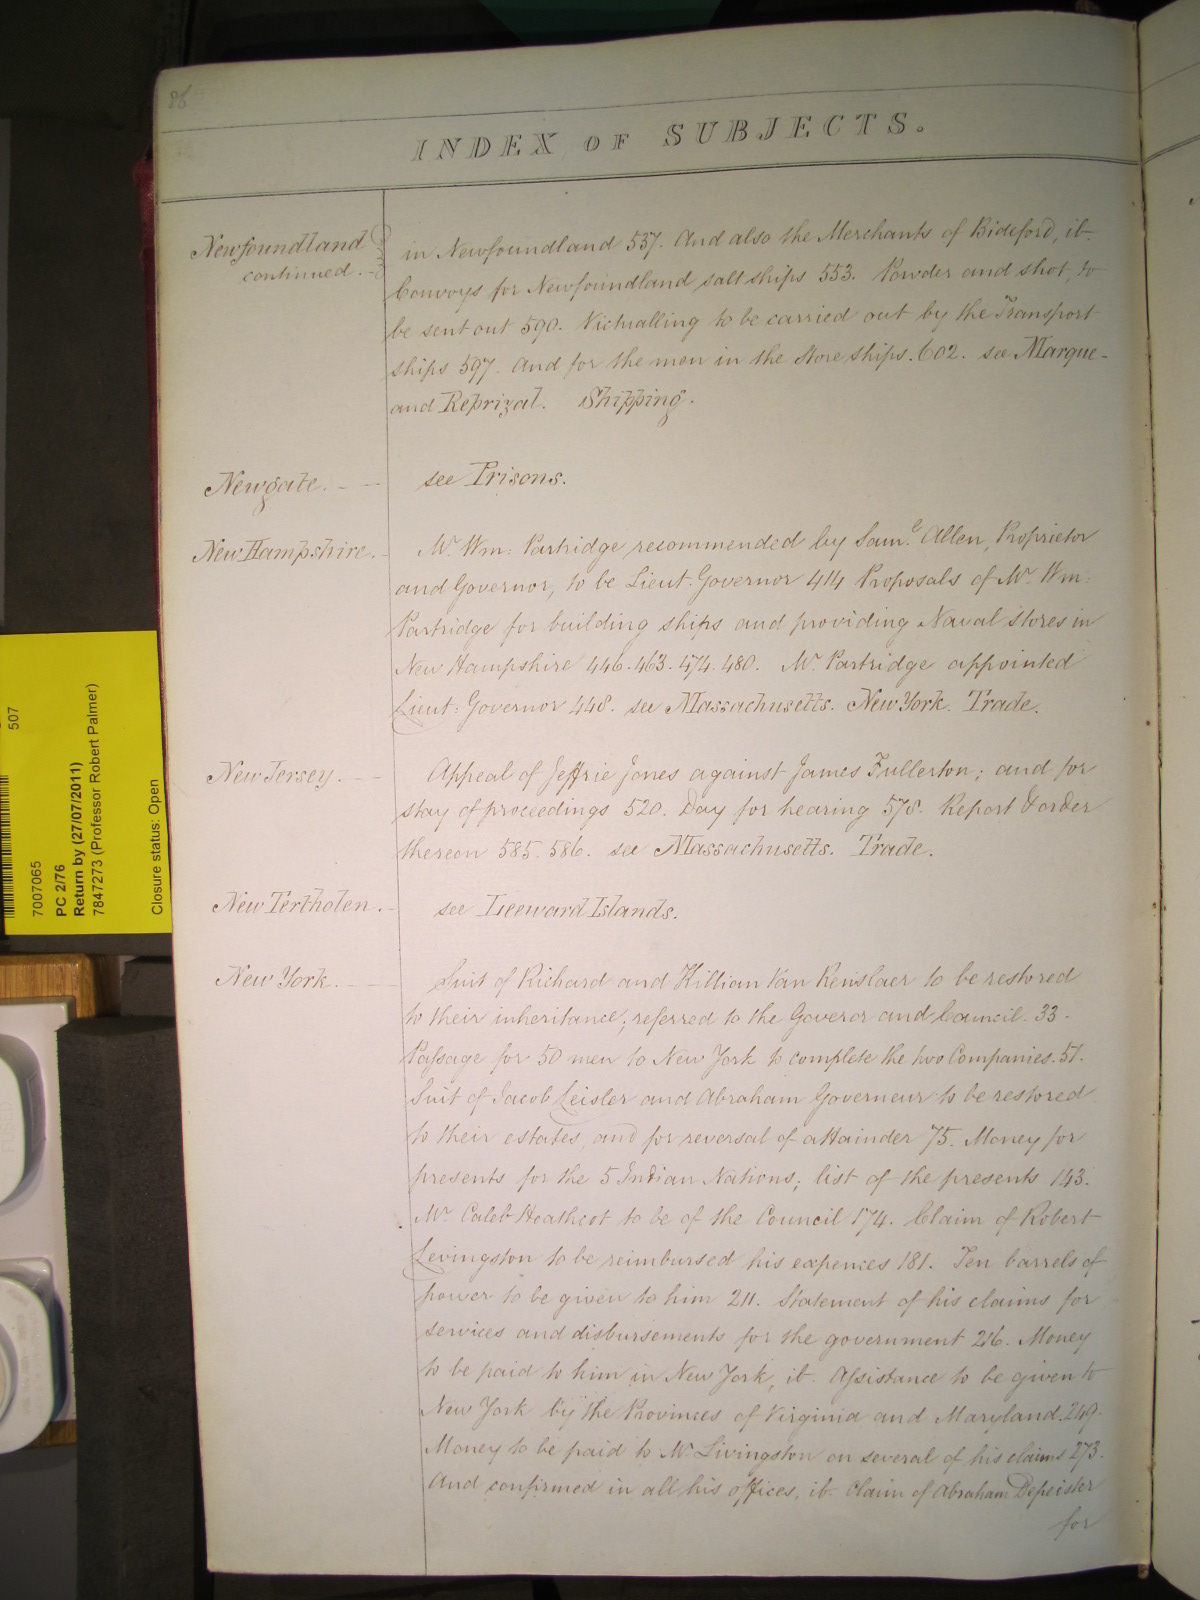 86
INDEX OF SUBJECTS.
Newfoundland continued. in Newfoundland 537. And also the Merchants of Bideford, ib.
Convoys for Newfoundland salt ships 553. Powder and shot, to
be sent out 590. Victualling to be carried out by the Transport
ships 597. And for the men in the Store ships. 602. see Marque-
and Reprizal. Shipping.
Newgate. - - see Prisons.
New Hampshire. - Mr. Wm: Partridge recommended by Saml. Allen, Proprietor
and Governor, to be Lieut: Governor 414 Proposals of Mr. Wm:
Partridge for building ships and providing Naval Stores in
New Hampshire 446. 463. 474. 480. Mr. Partridge appointed
Lieut: Governor 448. see Massachusetts. New York. Trade.
New Jersey. - - Appeal of Jeffrie Jones against James Fullerton; and for
stay of proceedings 520. Day for hearing 578. Report & order
thereon 585. 586. see Massachusetts. Trade.
New Tertholen. - see Leeward Islands.
New York. - - Suit of Richard and Killian Van Renslaer to be restored
to their inheritance; referred to the Goveror and Council. 33.
Passage for 50 men to New York to complete the two Companies. 51.
Suit of Jacob Leisler and Abraham Governeur to be restored
to their estates, and for reversal of attainder 75. Money for
presents for the 5 Indian Nations; list of the presents 143.
Mr. Caleb Heathcot to be of the Council 174. Claim of Robert
Levingston to be reimbursed his expences 181. Ten barrels of
power to be given to him 211. Statement of his claims for
services and disbursements for the government 216. Money
to be paid to him in New York, ib. Assistance to be given to
New York by the Provinces of Virginia and Maryland. 249.
Money to be paid to Mr. Livingston on several of his claims 273.
And confirmed in all his offices, ib. Claim of Abraham Depeister
for
507
7007065
PC 2/76
Return by (27/07/2011)
7847273 (Professor Robert Palmer)
Closure status: Open